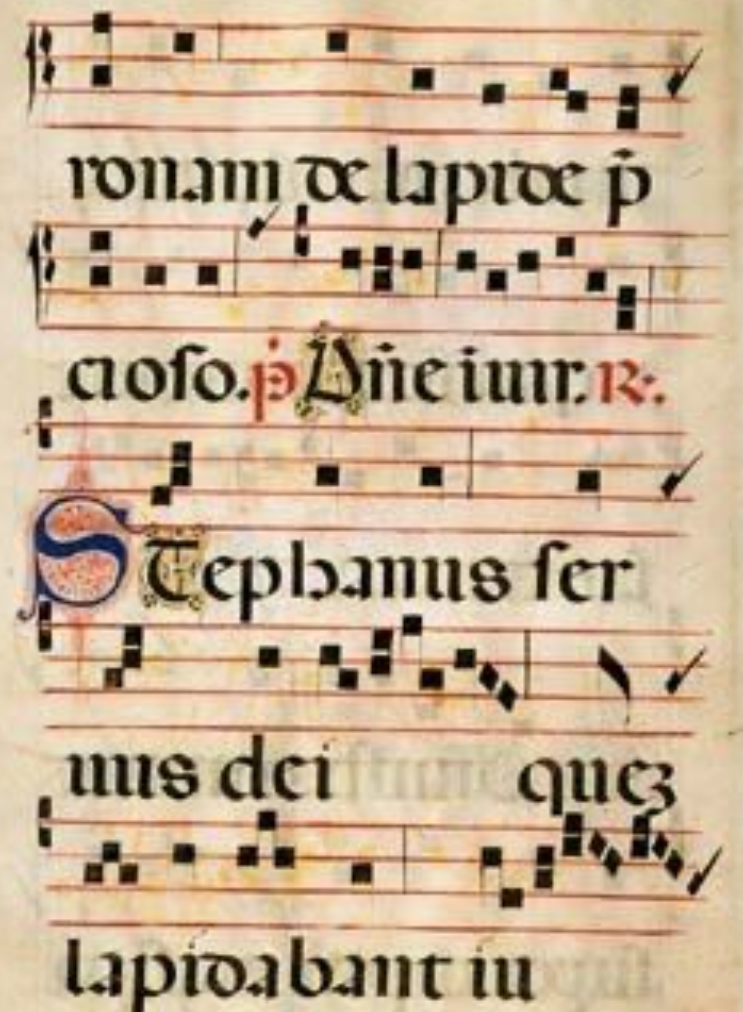 ronam de lapide p̄
cioso. p̄ Dn̄e iuir. R.
STephanus ser
uus dei quez
lapidabant iu